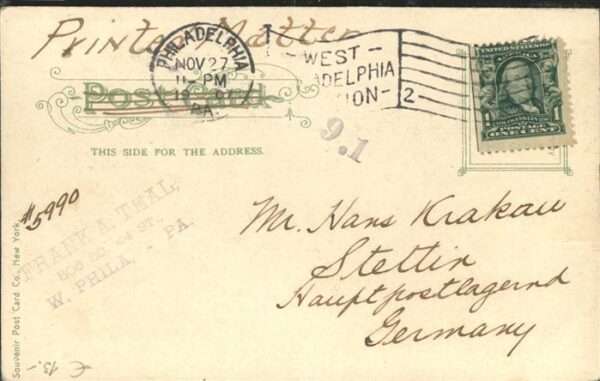 Printed Matter
PHILADELPHIA
NOV 27
PM
PA.
WEST
DELPHIA
ION - 2
UNITED STATES
1 1
POSTAGE
ONE CENT
Post Card
THIS SIDE FOR THE ADDRESS.
9.1
#5990
FRANK A. THAL,
ST.
W. PHILA. - PA.
Mr. Hans Krakau
Stettin
Hauptpostlagernd
Germany
Souvenir Post Card Co., New York.
€ 13.-